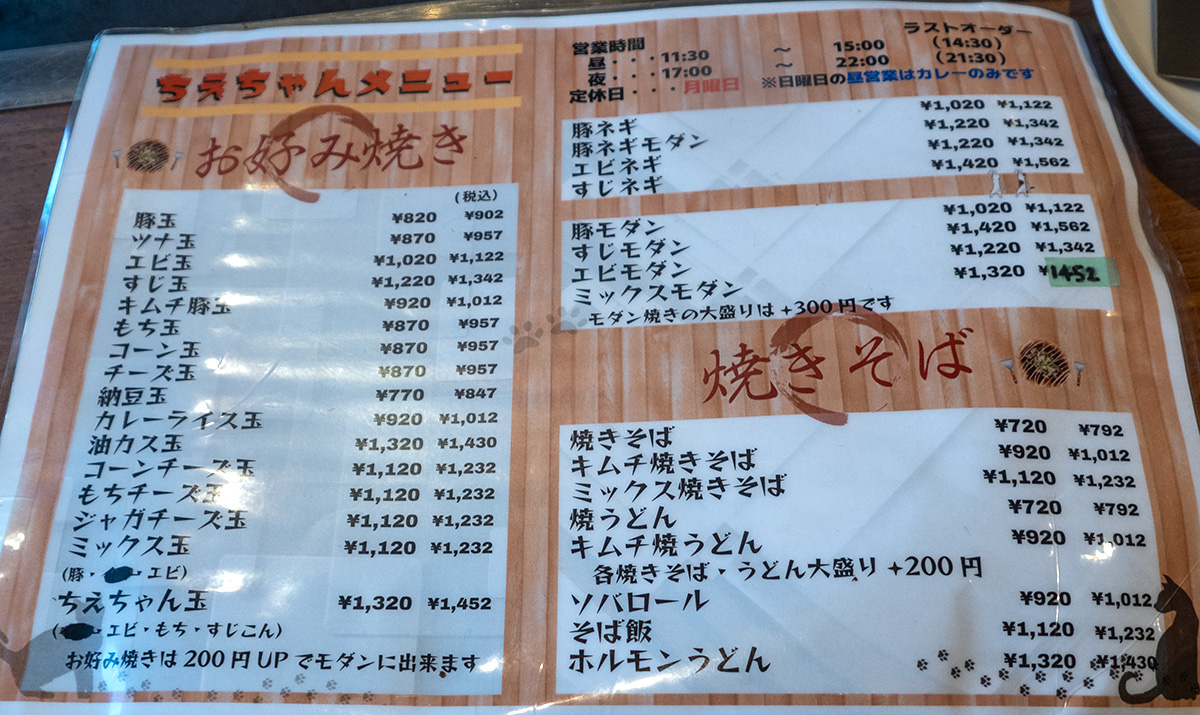 ちえちゃんメニュー
お好み焼き
(税込)
豚玉 ¥820 ¥902
ツナ玉 ¥870 ¥957
エビ玉 ¥1,020 ¥1,122
すじ玉 ¥1,220 ¥1,342
キムチ豚玉 ¥920 ¥1,012
もち玉 ¥870 ¥957
コーン玉 ¥870 ¥957
チーズ玉 ¥870 ¥957
納豆玉 ¥770 ¥847
カレーライス玉 ¥920 ¥1,012
油カス玉 ¥1,320 ¥1,430
コーンチーズ玉 ¥1,120 ¥1,232
もちチーズ玉 ¥1,120 ¥1,232
ジャガチーズ玉 ¥1,120 ¥1,232
ミックス玉 ¥1,120 ¥1,232
(豚・エビ)
ちえちゃん玉 ¥1,320 ¥1,452
(エビ・もち・すじこん)
お好み焼きは200円UPでモダンに出来ます
営業時間 ラストオーダー
昼・・・11:30 ～ 15:00 (14:30)
夜・・・17:00 ～ 22:00 (21:30)
定休日・・・月曜日 ※日曜日の昼営業はカレーのみです
豚ネギ ¥1,020 ¥1,122
豚ネギモダン ¥1,220 ¥1,342
エビネギ ¥1,220 ¥1,342
すじネギ ¥1,420 ¥1,562
豚モダン ¥1,020 ¥1,122
すじモダン ¥1,420 ¥1,562
エビモダン ¥1,220 ¥1,342
ミックスモダン ¥1,320 ¥1452
モダン焼きの大盛りは+300円です
焼きそば
焼きそば ¥720 ¥792
キムチ焼きそば ¥920 ¥1,012
ミックス焼きそば ¥1,120 ¥1,232
焼うどん ¥720 ¥792
キムチ焼うどん ¥920 ¥1,012
各焼きそば・うどん大盛り+200円
ソバロール ¥920 ¥1,012
そば飯 ¥1,120 ¥1,232
ホルモンうどん ¥1,320 ¥1,430